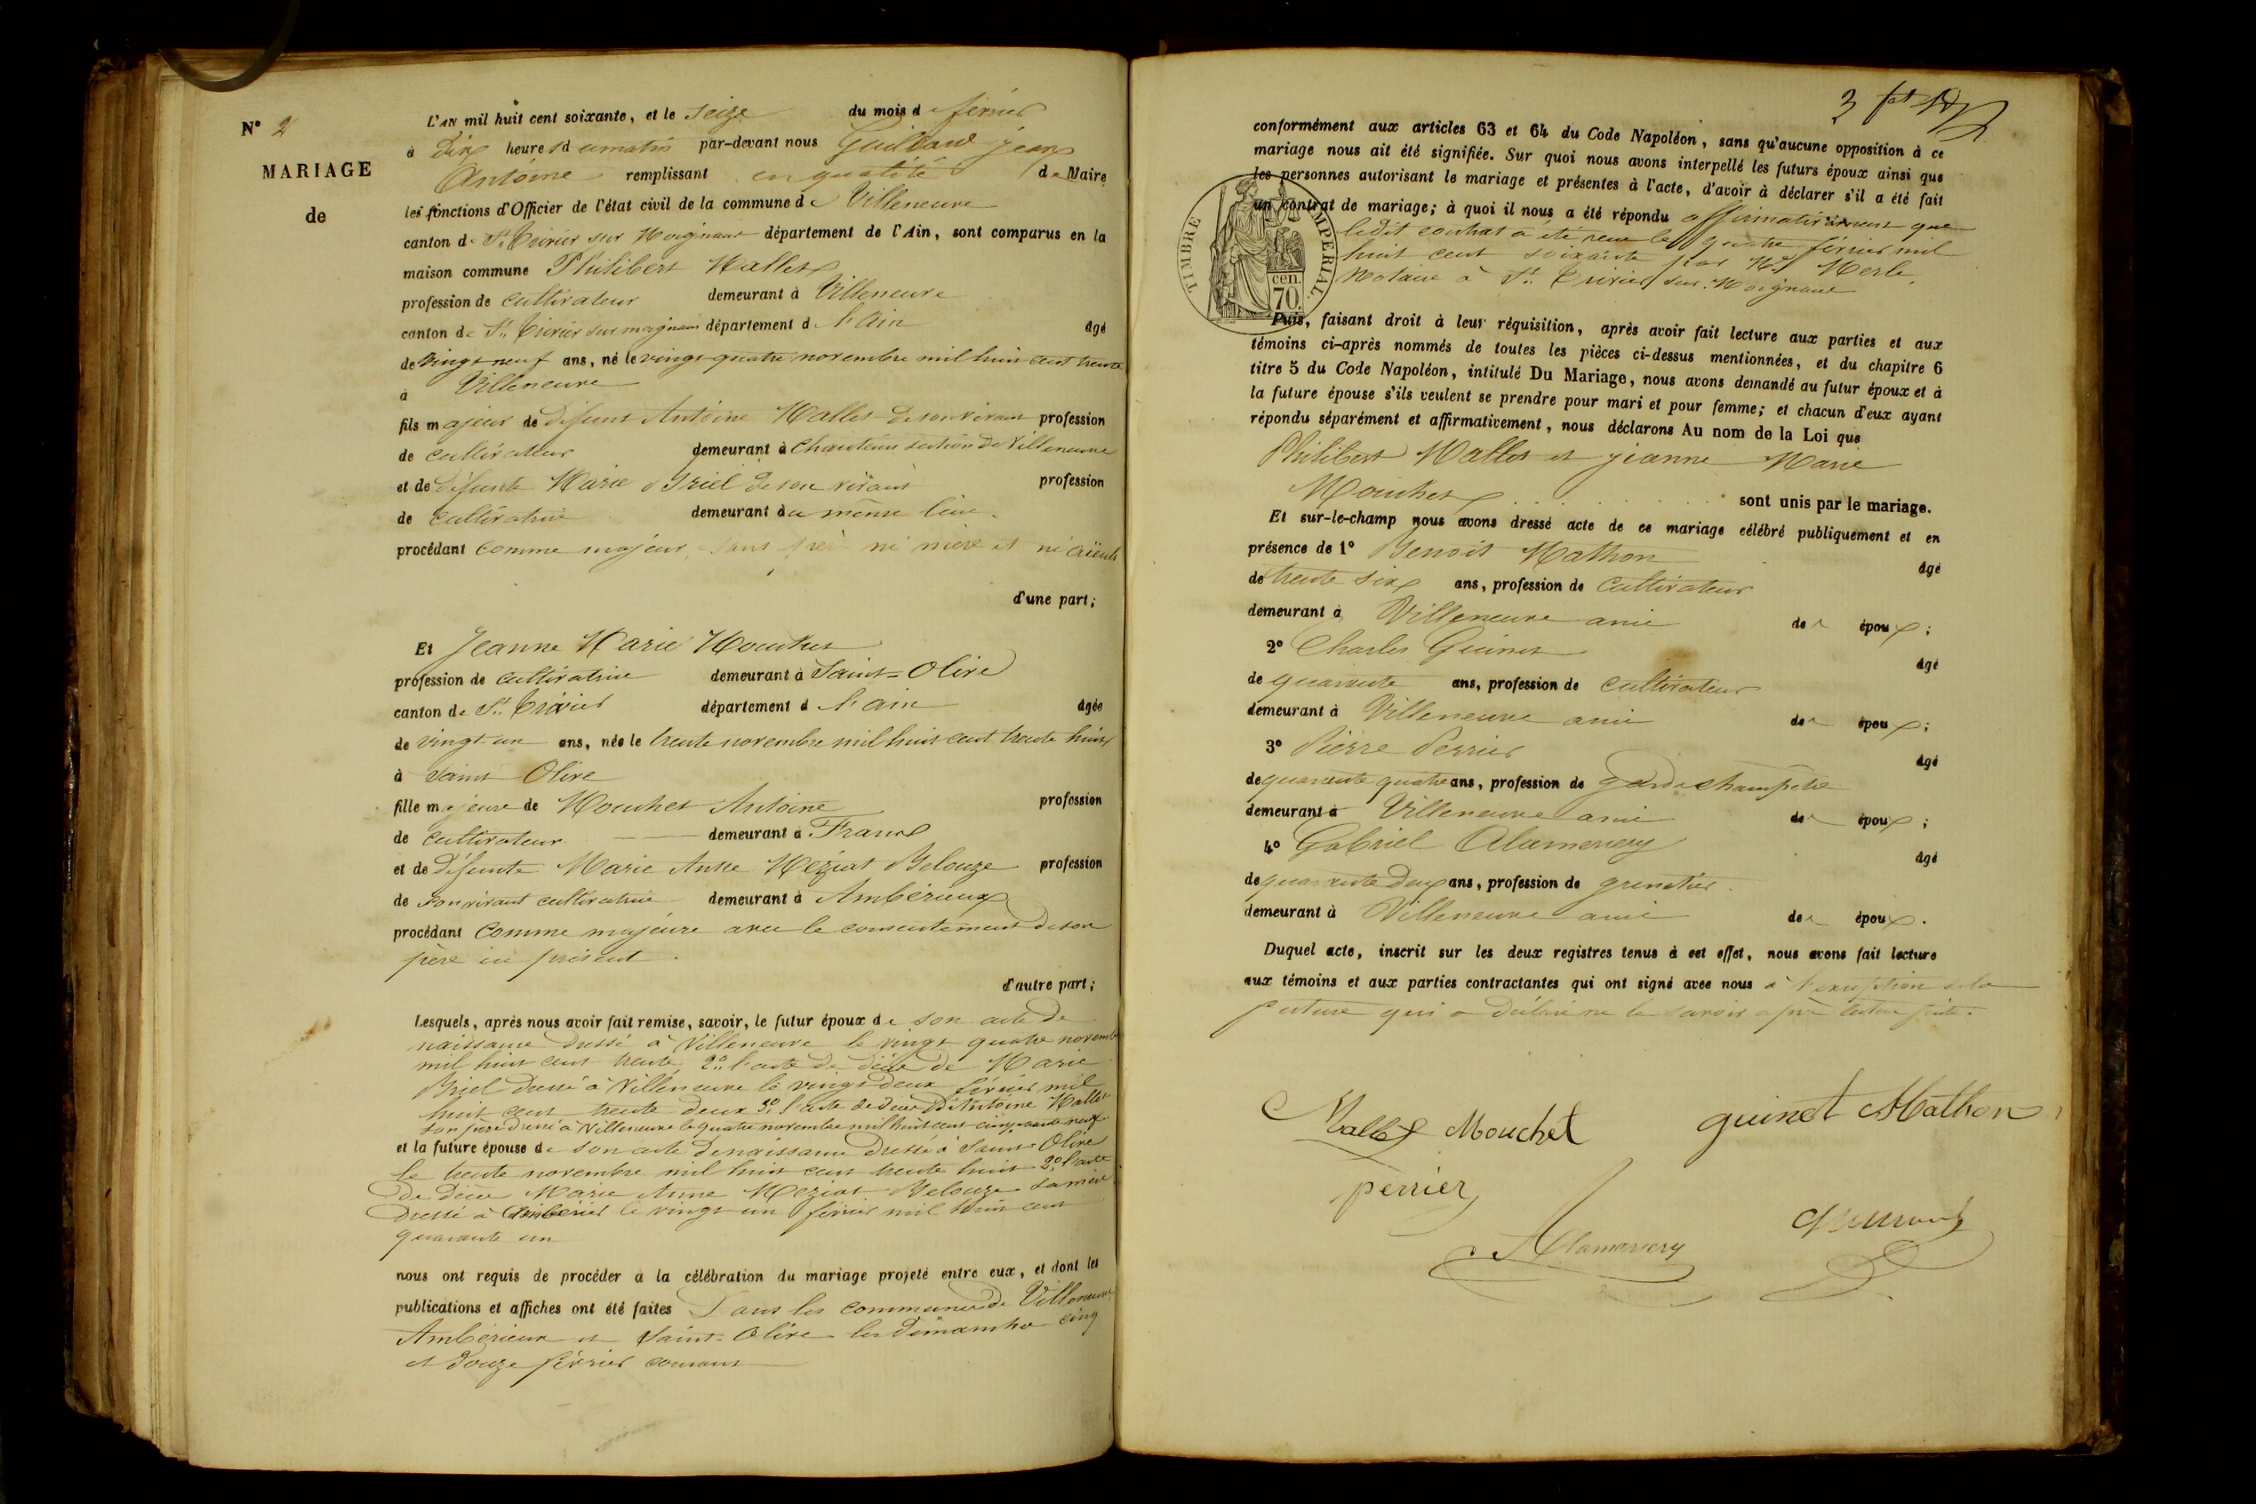 N° 2
MARIAGE
de
L'AN mil huit cent soixante, et le seize du mois de février
à dix heures du matin par-devant nous Guillard jean
Antoine remplissant en qualité de Maire
les fonctions d'Officier de l'état civil de la commune de Villeneuve
canton de St. Trivier sur Moignans département de l'Ain, sont comparus en la
maison commune Philibert Mallet
profession de cultivateur demeurant à Villeneuve
canton de St. Trivier sur moignans département d l'Ain âgé
de vingt neuf ans, né le vingt quatre novembre mil huit cent trente
à Villeneuve
fils majeur de défunt Antoine Mallet de son vivant profession
de cultivateur demeurant à Chanteins section de Villeneuve
et de défunte Marie Briel de son vivant profession
de cultivatrice demeurant au même lieu.
procédant comme majeur, sans père ni mère et ni aïeuls
d'une part;
Et Jeanne Marie Mouchet
profession de cultivatrice demeurant à Saint=Olive
canton de St. Trivier département d l'ain âgée
de vingt un ans, née le trente novembre mil huit cent trente huit
à Saint Olive
fille majeure de Mouchet Antoine profession
de cultivateur demeurant à Frans
et de défunte Marie Anne Méziat Belouze profession
de son vivant cultivatrice demeurant à Ambérieux
procédant comme majeure avec le consentement de son
père ici présent.
d'autre part;
Lesquels, après nous avoir fait remise, savoir, le futur époux de son acte de
naissance dressé à Villeneuve le vingt quatre novembre
mil huit cent trente, 2° l'acte de décès de Marie
Briel dressé à Villeneuve le vingt deux février mil
huit cent trente deux 3° l'acte de décès d'Antoine Mallet
son père dressé à Villeneuve le quatre novembre mil huit cent cinquante neuf
et la future épouse de son acte de naissance dressé à Saint=Olive
le trente novembre mil huit cent trente huit 2° l'acte
de décès Marie Anne Meziat Belouze sa mère
dressé à Ambérieux le vingt un février mil huit cent
quarante un
nous ont requis de procéder à la célébration du mariage projeté entre eux, et dont les
publications et affiches ont été faites Dans les communes de Villeneuve
Ambérieux et Saint=Olive les dimanches cinq
et douze février courant
3
conformément aux articles 63 et 64 du Code Napoléon, sans qu'aucune opposition à ce
mariage nous ait été signifiée. Sur quoi nous avons interpellé les futurs époux ainsi que
les personnes autorisant le mariage et présentes à l'acte, d'avoir à déclarer s'il a été fait
un contrat de mariage; à quoi il nous a été répondu affirmativement que
ledit contrat a été reçu le quatre février mil
huit cent soixante par Me. Merle,
Notaire à St. Trivier sur Moignans
TIMBRE IMPERIAL
cen.
70.
Puis, faisant droit à leur réquisition, après avoir fait lecture aux parties et aux
témoins ci-après nommés de toutes les pièces ci-dessus mentionnées, et du chapitre 6
titre 5 du Code Napoléon, intitulé Du Mariage, nous avons demandé au futur époux et à
la future épouse s'ils veulent se prendre pour mari et pour femme; et chacun d'eux ayant
répondu séparément et affirmativement, nous déclarons Au nom de la Loi que
Philibert Mallet et jeanne Marie
Mouchet sont unis par le mariage.
Et sur-le-champ nous avons dressé acte de ce mariage célébré publiquement et en
présence de 1° Benoit Mathon âgé
de trente six ans, profession de cultivateur
demeurant à Villeneuve ami de époux;
2° Charles Guinet âgé
de quarante ans, profession de cultivateur
demeurant à Villeneuve ami de époux;
3° Pierre Perrier âgé
de quarante quatre ans, profession de garde champêtre
demeurant à Villeneuve ami de époux;
4° Gabriel Alamercery âgé
de quarante deux ans, profession de grenetier
demeurant à Villeneuve ami de époux.
Duquel acte, inscrit sur les deux registres tenus à cet effet, nous avons fait lecture
aux témoins et aux parties contractantes qui ont signé avec nous à l'exception de la
future qui a déclaré ne le savoir après lecture faite.
Mallet Mouchet guinet Mathon
perrier
Alamercery